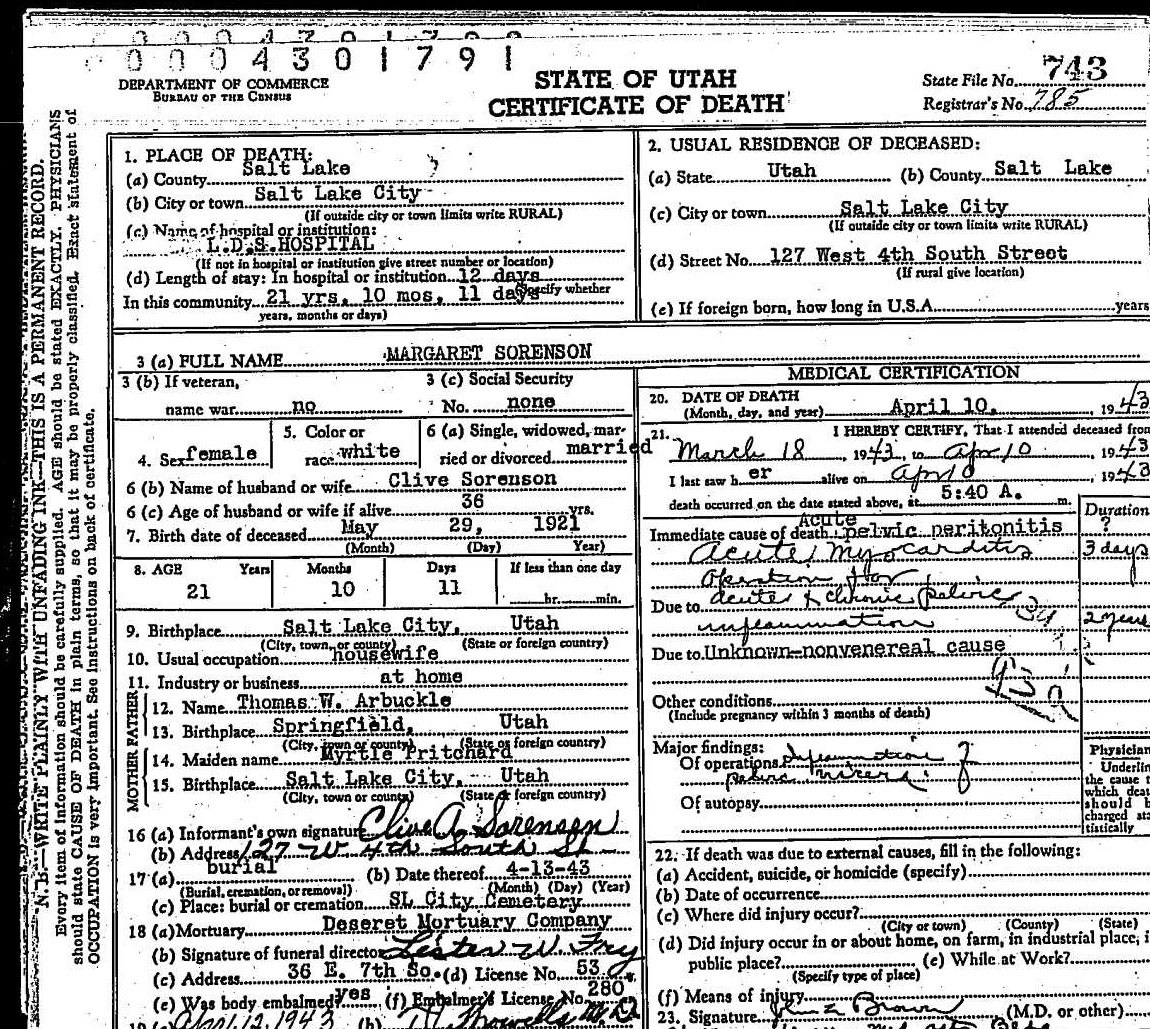 0004301791
DEPARTMENT OF COMMERCE
BUREAU OF THE CENSUS
STATE OF UTAH
CERTIFICATE OF DEATH
State File No. 743
Registrar's No. 785
N. B.—WRITE PLAINLY WITH UNFADING INK—THIS IS A PERMANENT RECORD.
Every item of information should be carefully supplied. AGE should be stated EXACTLY. PHYSICIANS
should state CAUSE OF DEATH in plain terms, so that it may be properly classified. Exact statement of
OCCUPATION is very important. See instructions on back of certificate.
1. PLACE OF DEATH:
(a) County Salt Lake
(b) City or town Salt Lake City
(If outside city or town limits write RURAL)
(c) Name of hospital or institution:
L.D.S. HOSPITAL
(If not in hospital or institution give street number or location)
(d) Length of stay: In hospital or institution 12 days
(Specify whether
In this community 21 yrs. 10 mos. 11 days
years, months or days)
2. USUAL RESIDENCE OF DECEASED:
(a) State Utah (b) County Salt Lake
(c) City or town Salt Lake City
(If outside city or town limits write RURAL)
(d) Street No. 127 West 4th South Street
(If rural give location)
(e) If foreign born, how long in U.S.A. years
3 (a) FULL NAME MARGARET SORENSON
3 (b) If veteran,
name war no
3 (c) Social Security
No. none
4. Sex female
5. Color or
race white
6 (a) Single, widowed, mar-
ried or divorced married
6 (b) Name of husband or wife Clive Sorenson
6 (c) Age of husband or wife if alive 36 yrs.
7. Birth date of deceased May 29, 1921
(Month) (Day) Year)
8. AGE Years Months Days If less than one day
21 10 11 hr. min.
9. Birthplace Salt Lake City, Utah
(City, town, or county) (State or foreign country)
10. Usual occupation housewife
11. Industry or business at home
FATHER
12. Name Thomas W. Arbuckle
13. Birthplace Springfield, Utah
(City, town or county) (State or foreign country)
MOTHER
14. Maiden name Myrtle Pritchard
15. Birthplace Salt Lake City, Utah
(City, town or county) (State or foreign country)
16 (a) Informant's own signature Clive A. Sorensen
(b) Address 127 W 4th South St
17 (a) burial (b) Date thereof 4-13-43
(Burial, cremation, or removal) (Month) (Day) (Year)
(c) Place: burial or cremation SL City Cemetery
18 (a) Mortuary Deseret Mortuary Company
(b) Signature of funeral director Lester W. Fry
(c) Address 36 E. 7th So. (d) License No. 53
(e) Was body embalmed? yes (f) Embalmer's License No. 280
April 12, 1943 (b)
MEDICAL CERTIFICATION
20. DATE OF DEATH
(Month, day, and year) April 10, 1943
21. I HEREBY CERTIFY, That I attended deceased from
March 18, 1943, to Apr 10, 1943
I last saw her alive on Apr 10, 1943
death occurred on the date stated above, at 5:40 A. m.
Duration
Immediate cause of death Acute pelvic peritonitis ?
Acute Myocarditis 3 days
Operation for
Due to acute & chronic pelvic
inflammation 2 years
Due to Unknown-nonvenereal cause
Other conditions
(Include pregnancy within 3 months of death)
Major findings:
Of operations Inflammation of
pelvic
Of autopsy
Physician
Underlin
the cause t
which deat
should b
charged sta
tistically
22. If death was due to external causes, fill in the following:
(a) Accident, suicide, or homicide (specify)
(b) Date of occurrence
(c) Where did injury occur?
(City or town) (County) (State)
(d) Did injury occur in or about home, on farm, in industrial place, i
public place? (e) While at Work?
(Specify type of place)
(f) Means of injury
23. Signature Brown (M.D. or other)